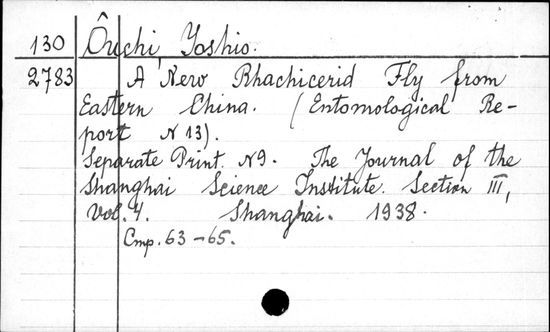 130 Ôuchi, Yoshio.
2783 A New Rhachicerid Fly from
Eastern China. (Entomological Re-
port N 13).
Separate Print. N9. The Journal of the
Shanghai Science Institute. Section III,
Vol. 4. Shanghai. 1938.
Cmp. 63-65.